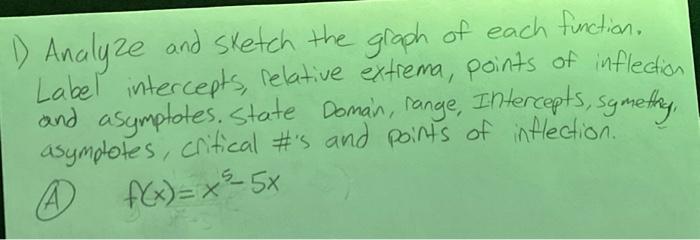 1) Analyze and sketch the graph of each function.
Label intercepts, relative extrema, points of inflection
and asymptotes. State Domain, range, Intercepts, symethy,
asymptotes, critical #'s and points of inflection.
(A) f(x) = x⁵ - 5x